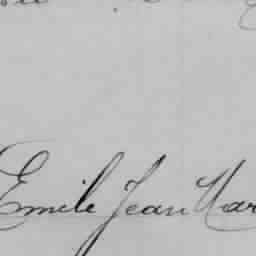 Emile Jean Mar